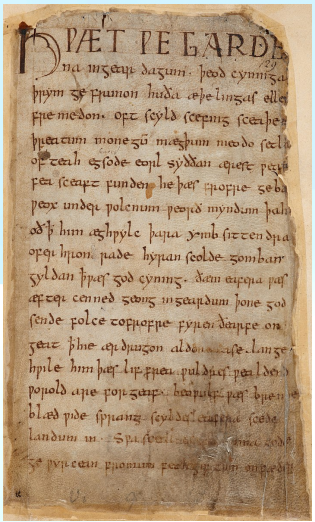 HǷÆT ǷE GARDE
na ingear dagum · þeod cyninga
þrym ge frunon huða æþelingas elle
fre medon · oft scyld scefing sceaþe
þreatum monegū mægþum meodo setla
of teah egsode eorl syððan ærest ƿear
fea sceaft funden he þæs frofre geba
ƿeox under ƿolcnum ƿeorð myndum þah
oð ꝥ him æghƿylc þara ymb sittendra
ofer hron rade hyran scolde gomban
gyldan ꝥ ƿæs god cyning · ðæm eafera ƿæs
æfter cenned geong ingeardum þone god
sende folce tofrofre fyren ðearfe on
geat ꝥ hie ær drugon aldor ase · lange
hƿile him þæs lif frea ƿuldres ƿealdend
ƿorold are for geaf · beoƿulf ƿæs breme
blæd ƿide sprang scyldes eafera scede
landum in · Sƿa uma gode
ge ƿyrcean fromum feoh giftum on fæder